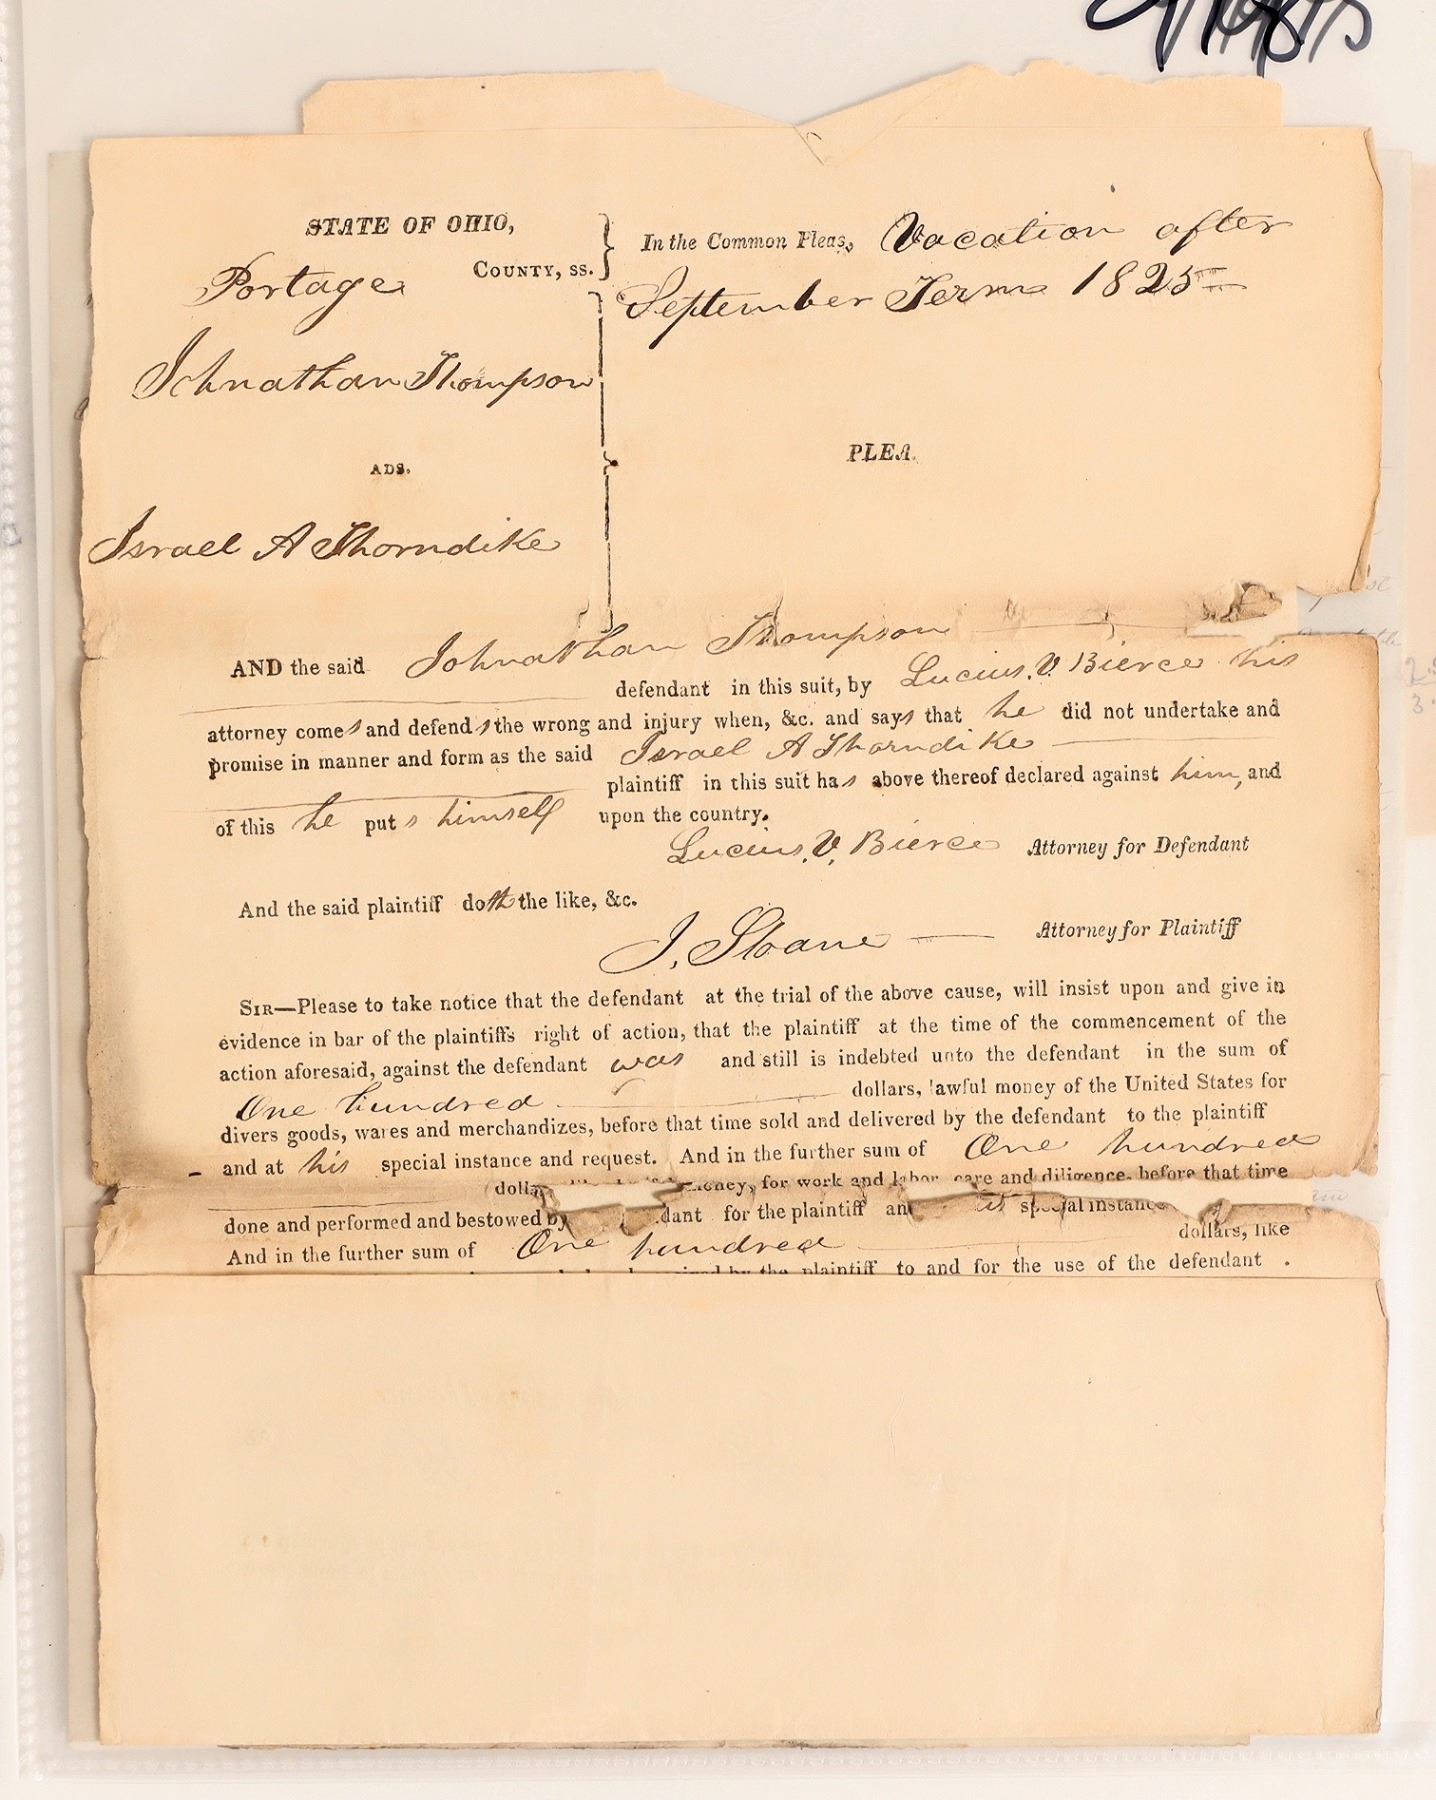 STATE OF OHIO,
Portage COUNTY, ss.
In the Common Pleas, Vacation after
September Term 1825
Johnathan Thompson
ADS.
PLEA.
Israel A Thorndike
AND the said Johnathan Thompson
defendant in this suit, by Lucius. V. Bierce his
attorney comes and defends the wrong and injury when, &c. and says that he did not undertake and
promise in manner and form as the said Israel A Thorndike
plaintiff in this suit has above thereof declared against him, and
of this he puts himself upon the country.
Lucius. V. Bierce Attorney for Defendant
And the said plaintiff doth the like, &c.
J. Sloane Attorney for Plaintiff
SIR—Please to take notice that the defendant at the trial of the above cause, will insist upon and give in
evidence in bar of the plaintiffs right of action, that the plaintiff at the time of the commencement of the
action aforesaid, against the defendant was and still is indebted unto the defendant in the sum of
One hundred dollars, lawful money of the United States for
divers goods, wares and merchandizes, before that time sold and delivered by the defendant to the plaintiff
and at his special instance and request. And in the further sum of One hundred
money, for work and labor, care and diligence, before that time
done and performed and bestowed by for the plaintiff special instance
And in the further sum of One hundred dollars, like
by the plaintiff to and for the use of the defendant .